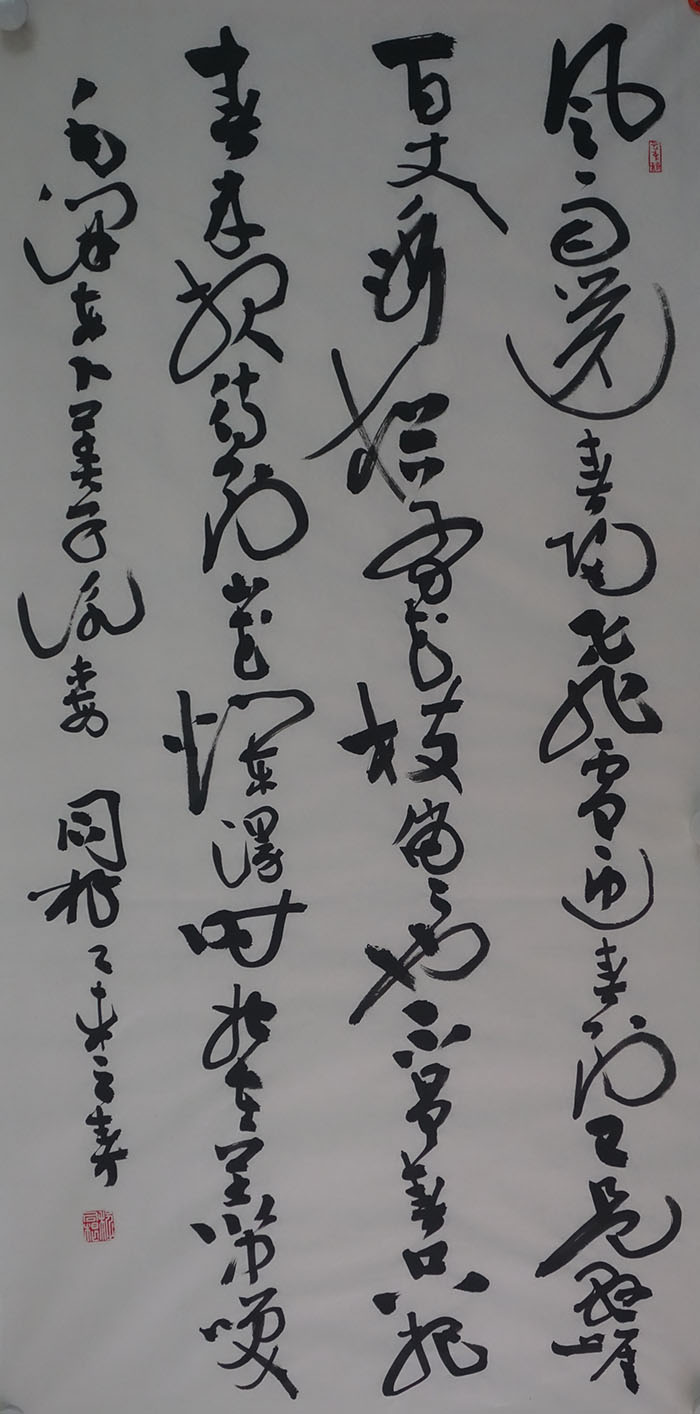 風雨送春歸飛雪迎春到已是懸崖
百丈冰猶有花枝俏俏也不爭春只把
春來報待到山花爛漫時她在叢中笑
毛澤東卜算子詠梅 同根乙未之春